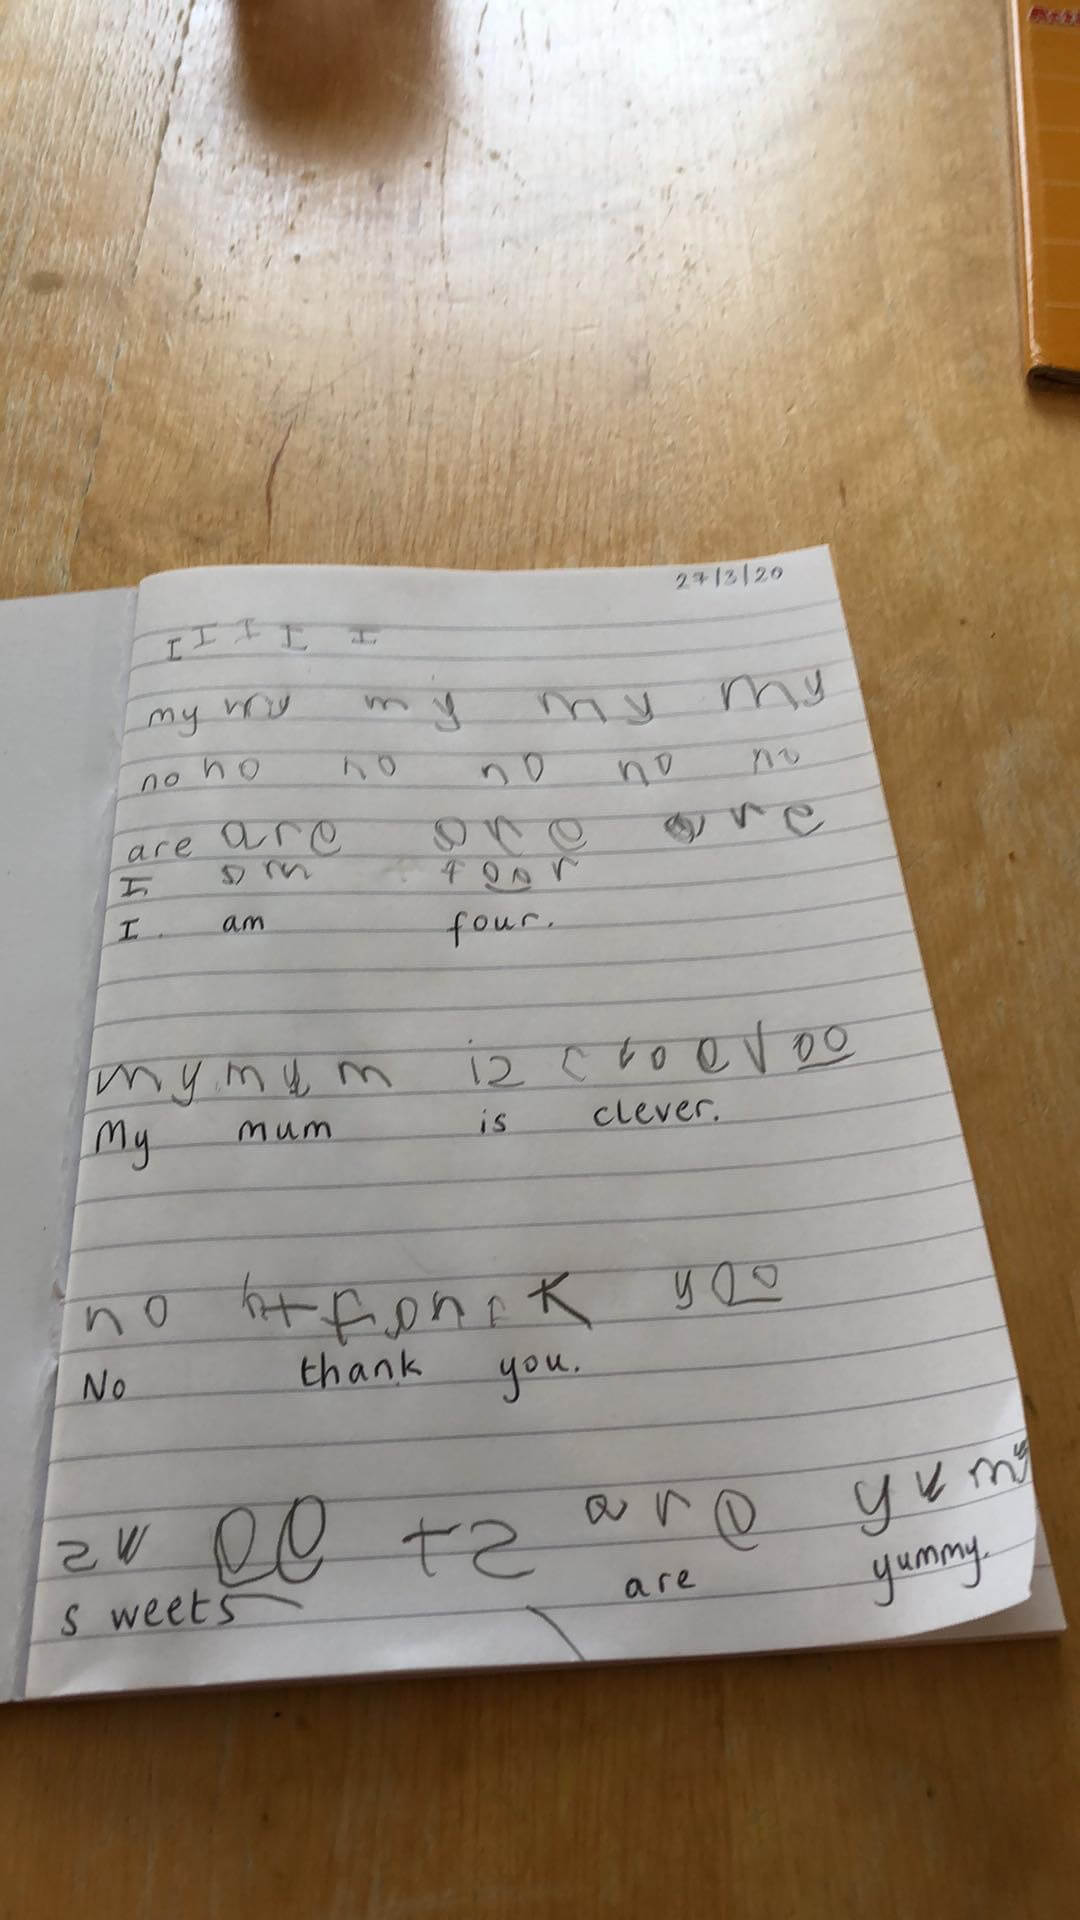 27/3/20
I I I I I
my my my my my
no no no no no no
are are are are
I am foor
I am four.
my mum is
My mum is clever.
no you
No thank you.
are yum
sweets are yummy.